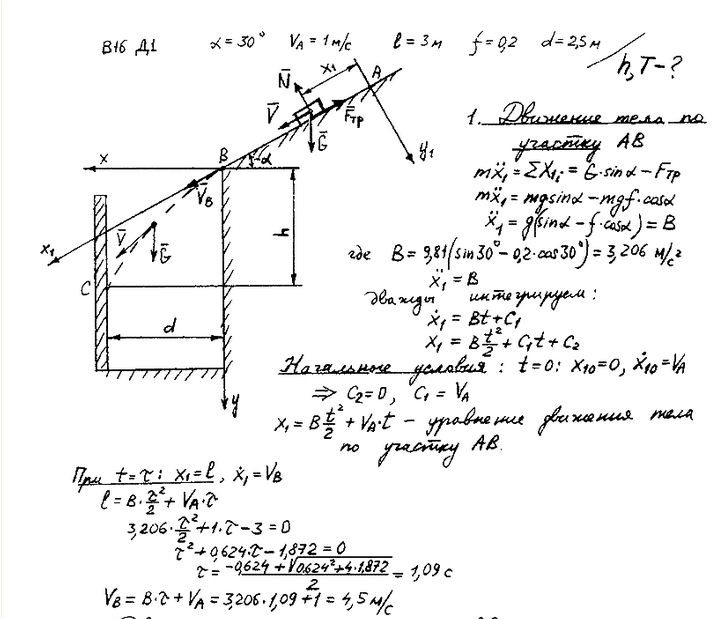 В16 Д1 α = 30° V_A = 1 м/с ℓ = 3 м f = 0,2 d = 2,5 м
h, T – ?
N̄ x₁ A
V̄ F̄тр
Ḡ y₁
x B α
V̄_B
x₁ V̄ Ḡ h
C
d
y
1. Движение тела по
участку АВ
mẍ₁ = ΣX₁ᵢ = G·sinα – Fтр
mẍ₁ = mgsinα – mgf·cosα
ẍ₁ = g(sinα – f·cosα) = B
где B = 9,81(sin30° – 0,2·cos30°) = 3,206 м/с²
ẍ₁ = B
дважды интегрируем:
ẋ₁ = Bt + C₁
x₁ = B t²/2 + C₁t + C₂
Начальные условия: t=0: x₁₀=0, ẋ₁₀=V_A
⇒ C₂ = 0, C₁ = V_A
x₁ = B t²/2 + V_A·t – уравнение движения тела
по участку АВ.
При t = τ: x₁ = ℓ, ẋ₁ = V_B
ℓ = B·τ²/2 + V_A·τ
3,206·τ²/2 + 1·τ – 3 = 0
τ² + 0,624·τ – 1,872 = 0
τ = (–0,624 + √(0,624² + 4·1,872))/2 = 1,09 с
V_B = B·τ + V_A = 3,206·1,09 + 1 = 4,5 м/с